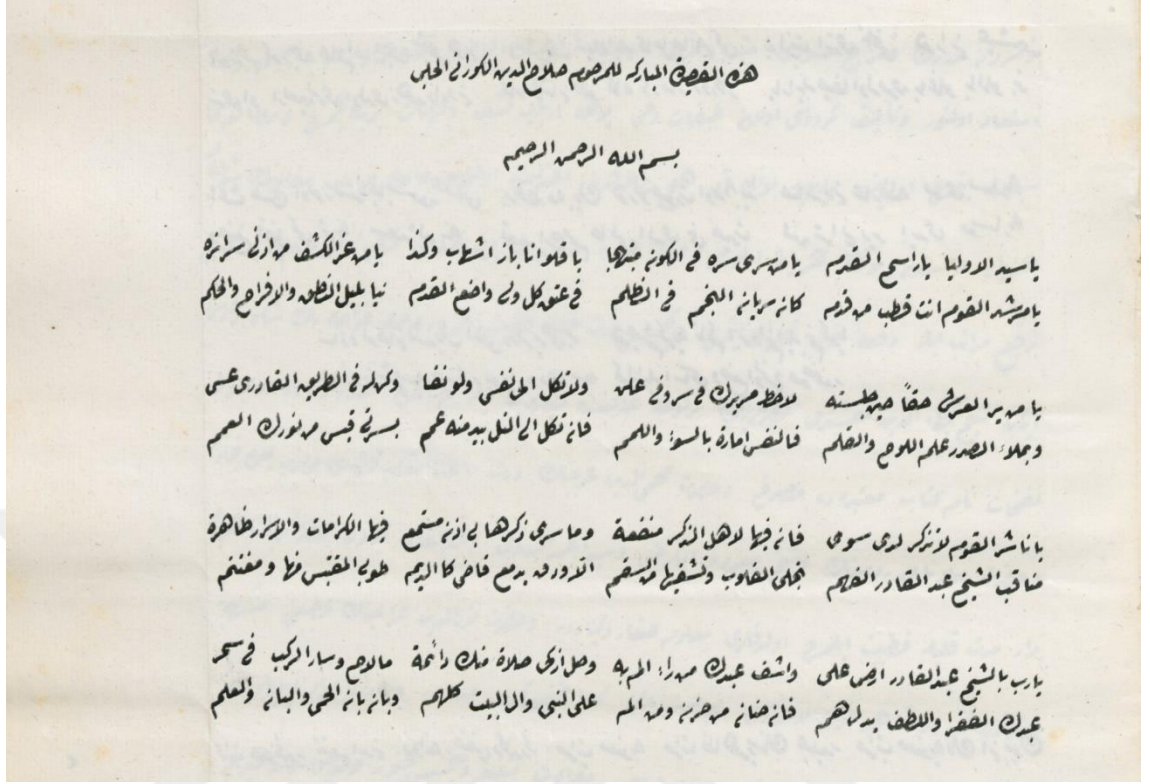 هذه القصيدة المباركه للمرحوم صلاح الدين الكوراني الحلبي
بسم الله الرحمن الرحيم
يا سيد الاوليا يا راسخ القدم يا من سرى سره في الكون مبتهجا يا قلو انا باز اشهاب وكذا يا من غدا لكشف من ادنى سرائره
يا مرشد القوم انت قطب من قدم كانه سريان النجم في الظلم في عنق كل ولي واضع القدم نيا بلبل النطق والافراح والحكم
يا من ير العرش حقاً حين جلسته لاحظ مريدك في سر وفي علن ولا تكل الى نفسى ولو نفسا وكن له في الطريق القادرى عسى
وبملاء الصدر علم اللوح والقلم فالنفس امارة بالسوء واللمم فان تكل الى النيل بيد منه عمم بسرتي قبس من نورك العمم
يا ناشر القوم لا تذكر لدى سوى فان فيها لاهل الذكر منفعة وما سرى ذكرها في اذن مستمع فيها الكرامات والاسرار ظاهرة
مناقب الشيخ عبد القادر الفهم تجلى القلوب وتشفيها من السقم الا ورق بدمع فاض كا الديم طوبى لمقتبس منها ومغتنم
يارب بالشيخ عبد القادر ارض على واشف عبدك من داء الم به وصل ازكى صلاة منك دائمة ما لاح وسار الركب في سحر
عبدك الفقرا واللطف بدلهم فان ضنانه من حزن ومن الم على النبي وال البيت كلهم وبان بانة الحمى والبان والعلم